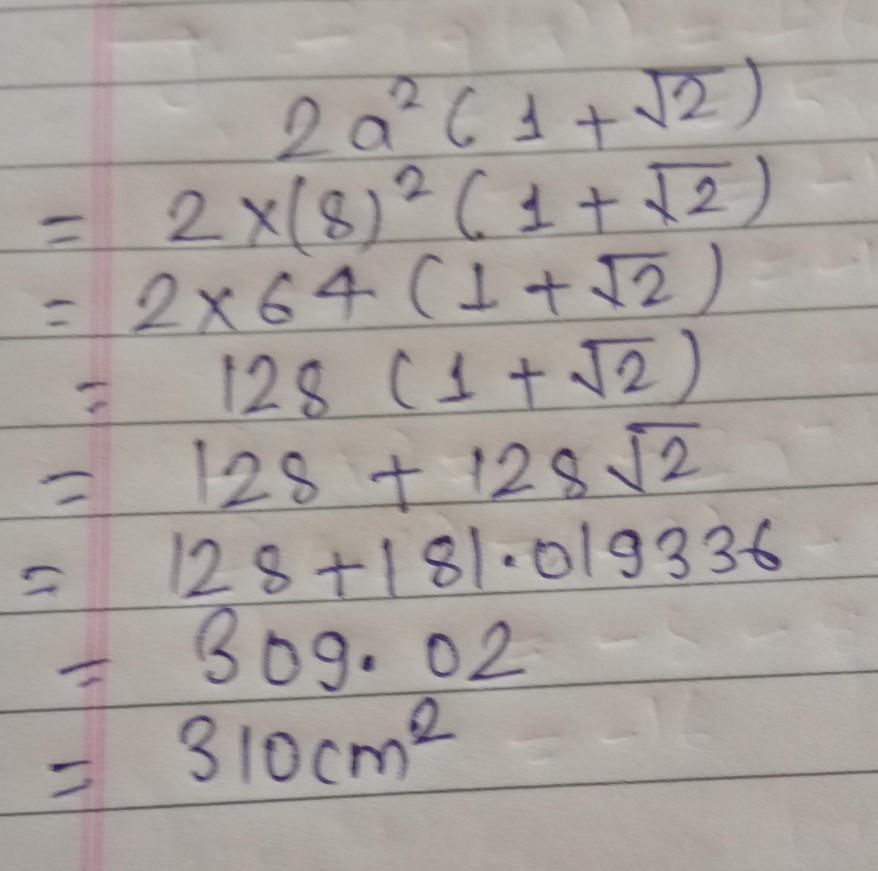 2a²(1+√2)
= 2×(8)²(1+√2)
= 2×64(1+√2)
= 128(1+√2)
= 128+128√2
= 128+181.019336
= 309.02
= 310cm²